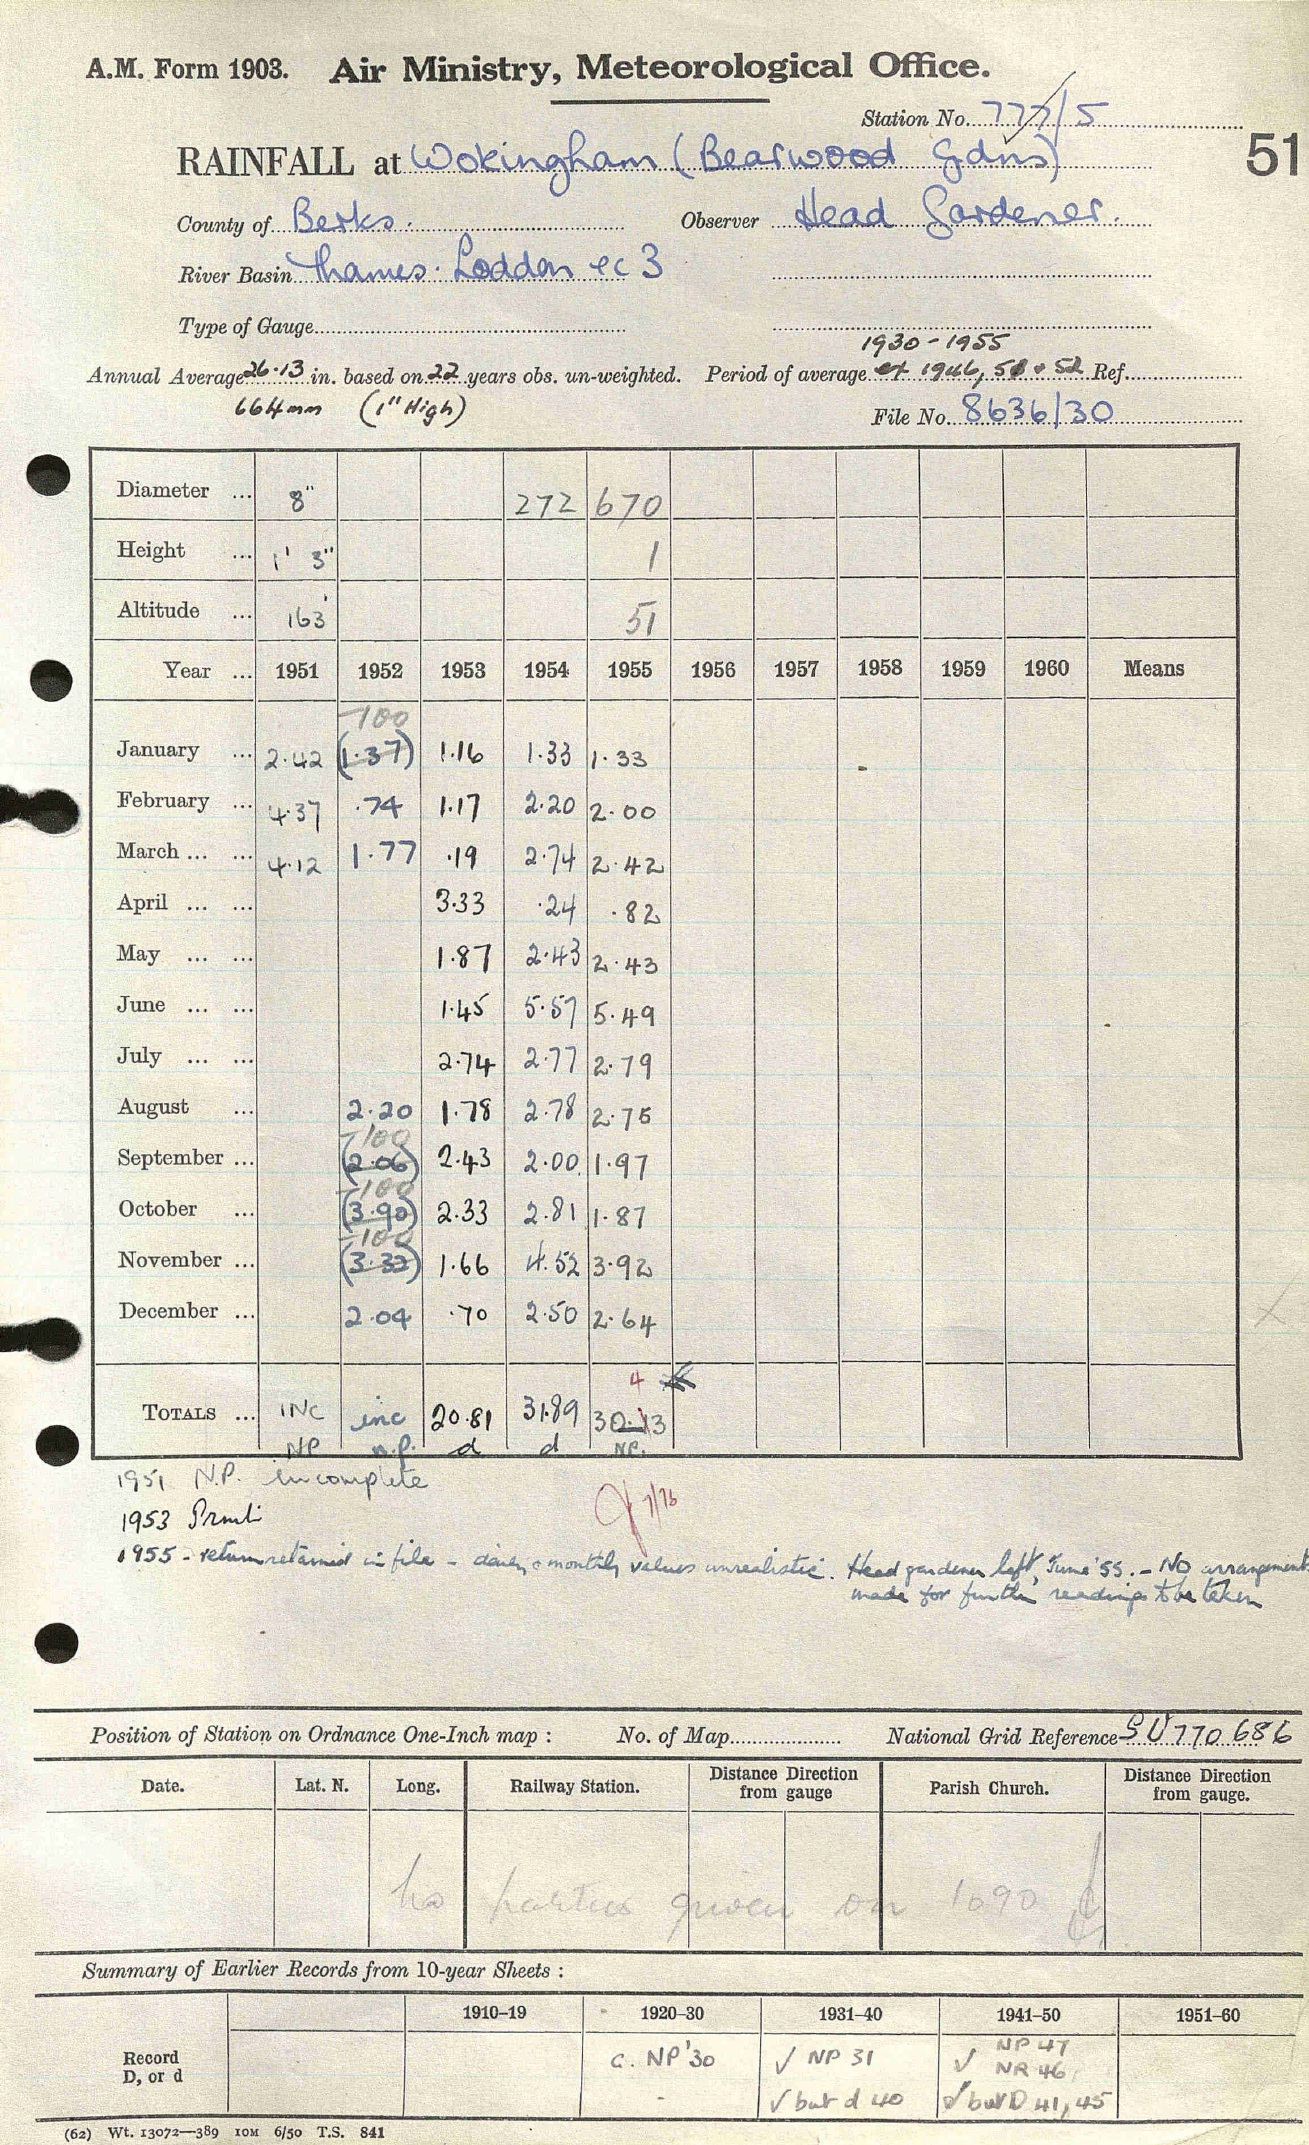 A.M. Form 1903. Air Ministry, Meteorological Office.
Station No. 777/5
RAINFALL at Wokingham (Bearwood Gdns) 51
County of Berks. Observer Head Gardener.
River Basin Thames. Loddon ec 3
Type of Gauge
1930-1955
Annual Average 26.13 in. based on 22 years obs. un-weighted. Period of average ex 1946, 51 + 52 Ref.
664mm (1" High) File No. 8636/30
Diameter ... 8" 272 670
Height ... 1' 3" 1
Altitude ... 163' 51
Year ... 1951 1952 1953 1954 1955 1956 1957 1958 1959 1960 Means
-100
January ... 2.42 (1.37) 1.16 1.33 1.33
February ... 4.37 .74 1.17 2.20 2.00
March ... ... 4.12 1.77 .19 2.74 2.42
April ... ... 3.33 .24 .82
May ... ... 1.87 2.43 2.43
June ... ... 1.45 5.57 5.49
July ... ... 2.74 2.77 2.79
August ... 2.20 1.78 2.78 2.75
-100
September ... (2.06) 2.43 2.00 1.97
-100
October ... (3.90) 2.33 2.81 1.87
-100
November ... (3.33) 1.66 4.52 3.92
December ... 2.04 .70 2.50 2.64
4
TOTALS ... INC inc 20.81 31.89 30.13
NP n.p. d d NP.
1951 N.P. incomplete
7/76
1953
1955 - return retained in file - daily & monthly values unrealistic. Head gardener left, June '55. - NO arrangements
made for further readings to be taken
Position of Station on Ordnance One-Inch map : No. of Map National Grid Reference SU 770 686
Date. Lat. N. Long. Railway Station. Distance Direction from gauge Parish Church. Distance Direction from gauge.
no given on 1090
Summary of Earlier Records from 10-year Sheets :
1910–19 1920–30 1931–40 1941–50 1951–60
NP 47
Record c. NP '30 ✓ NP 31 ✓ NR 46
D, or d ✓ but d 40 ✓ but D 41, 45
(62) Wt. 13072—389 10M 6/50 T.S. 841